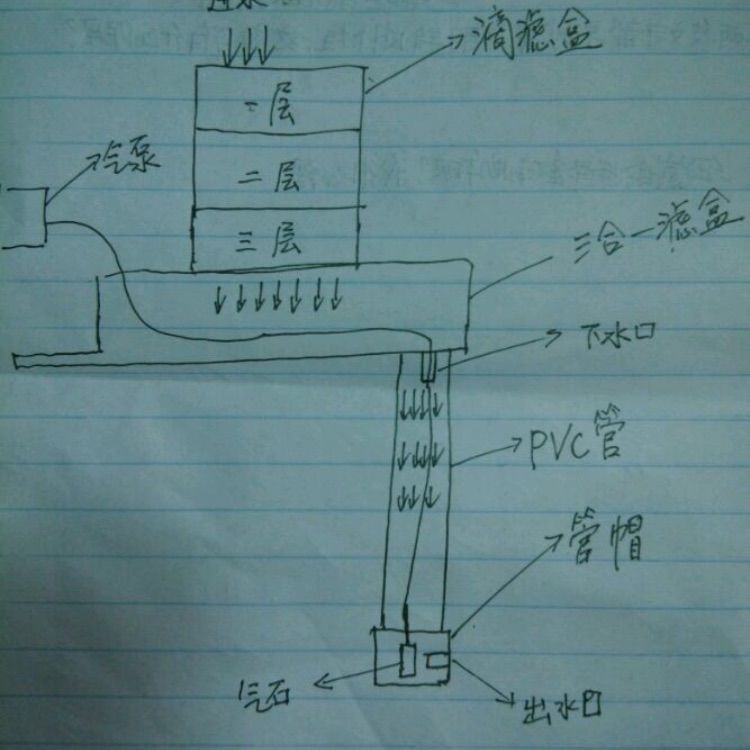 进水
滴滤盒
一层
气泵
二层
三层
三合一滤盒
下水口
PVC管
管帽
气石
出水口